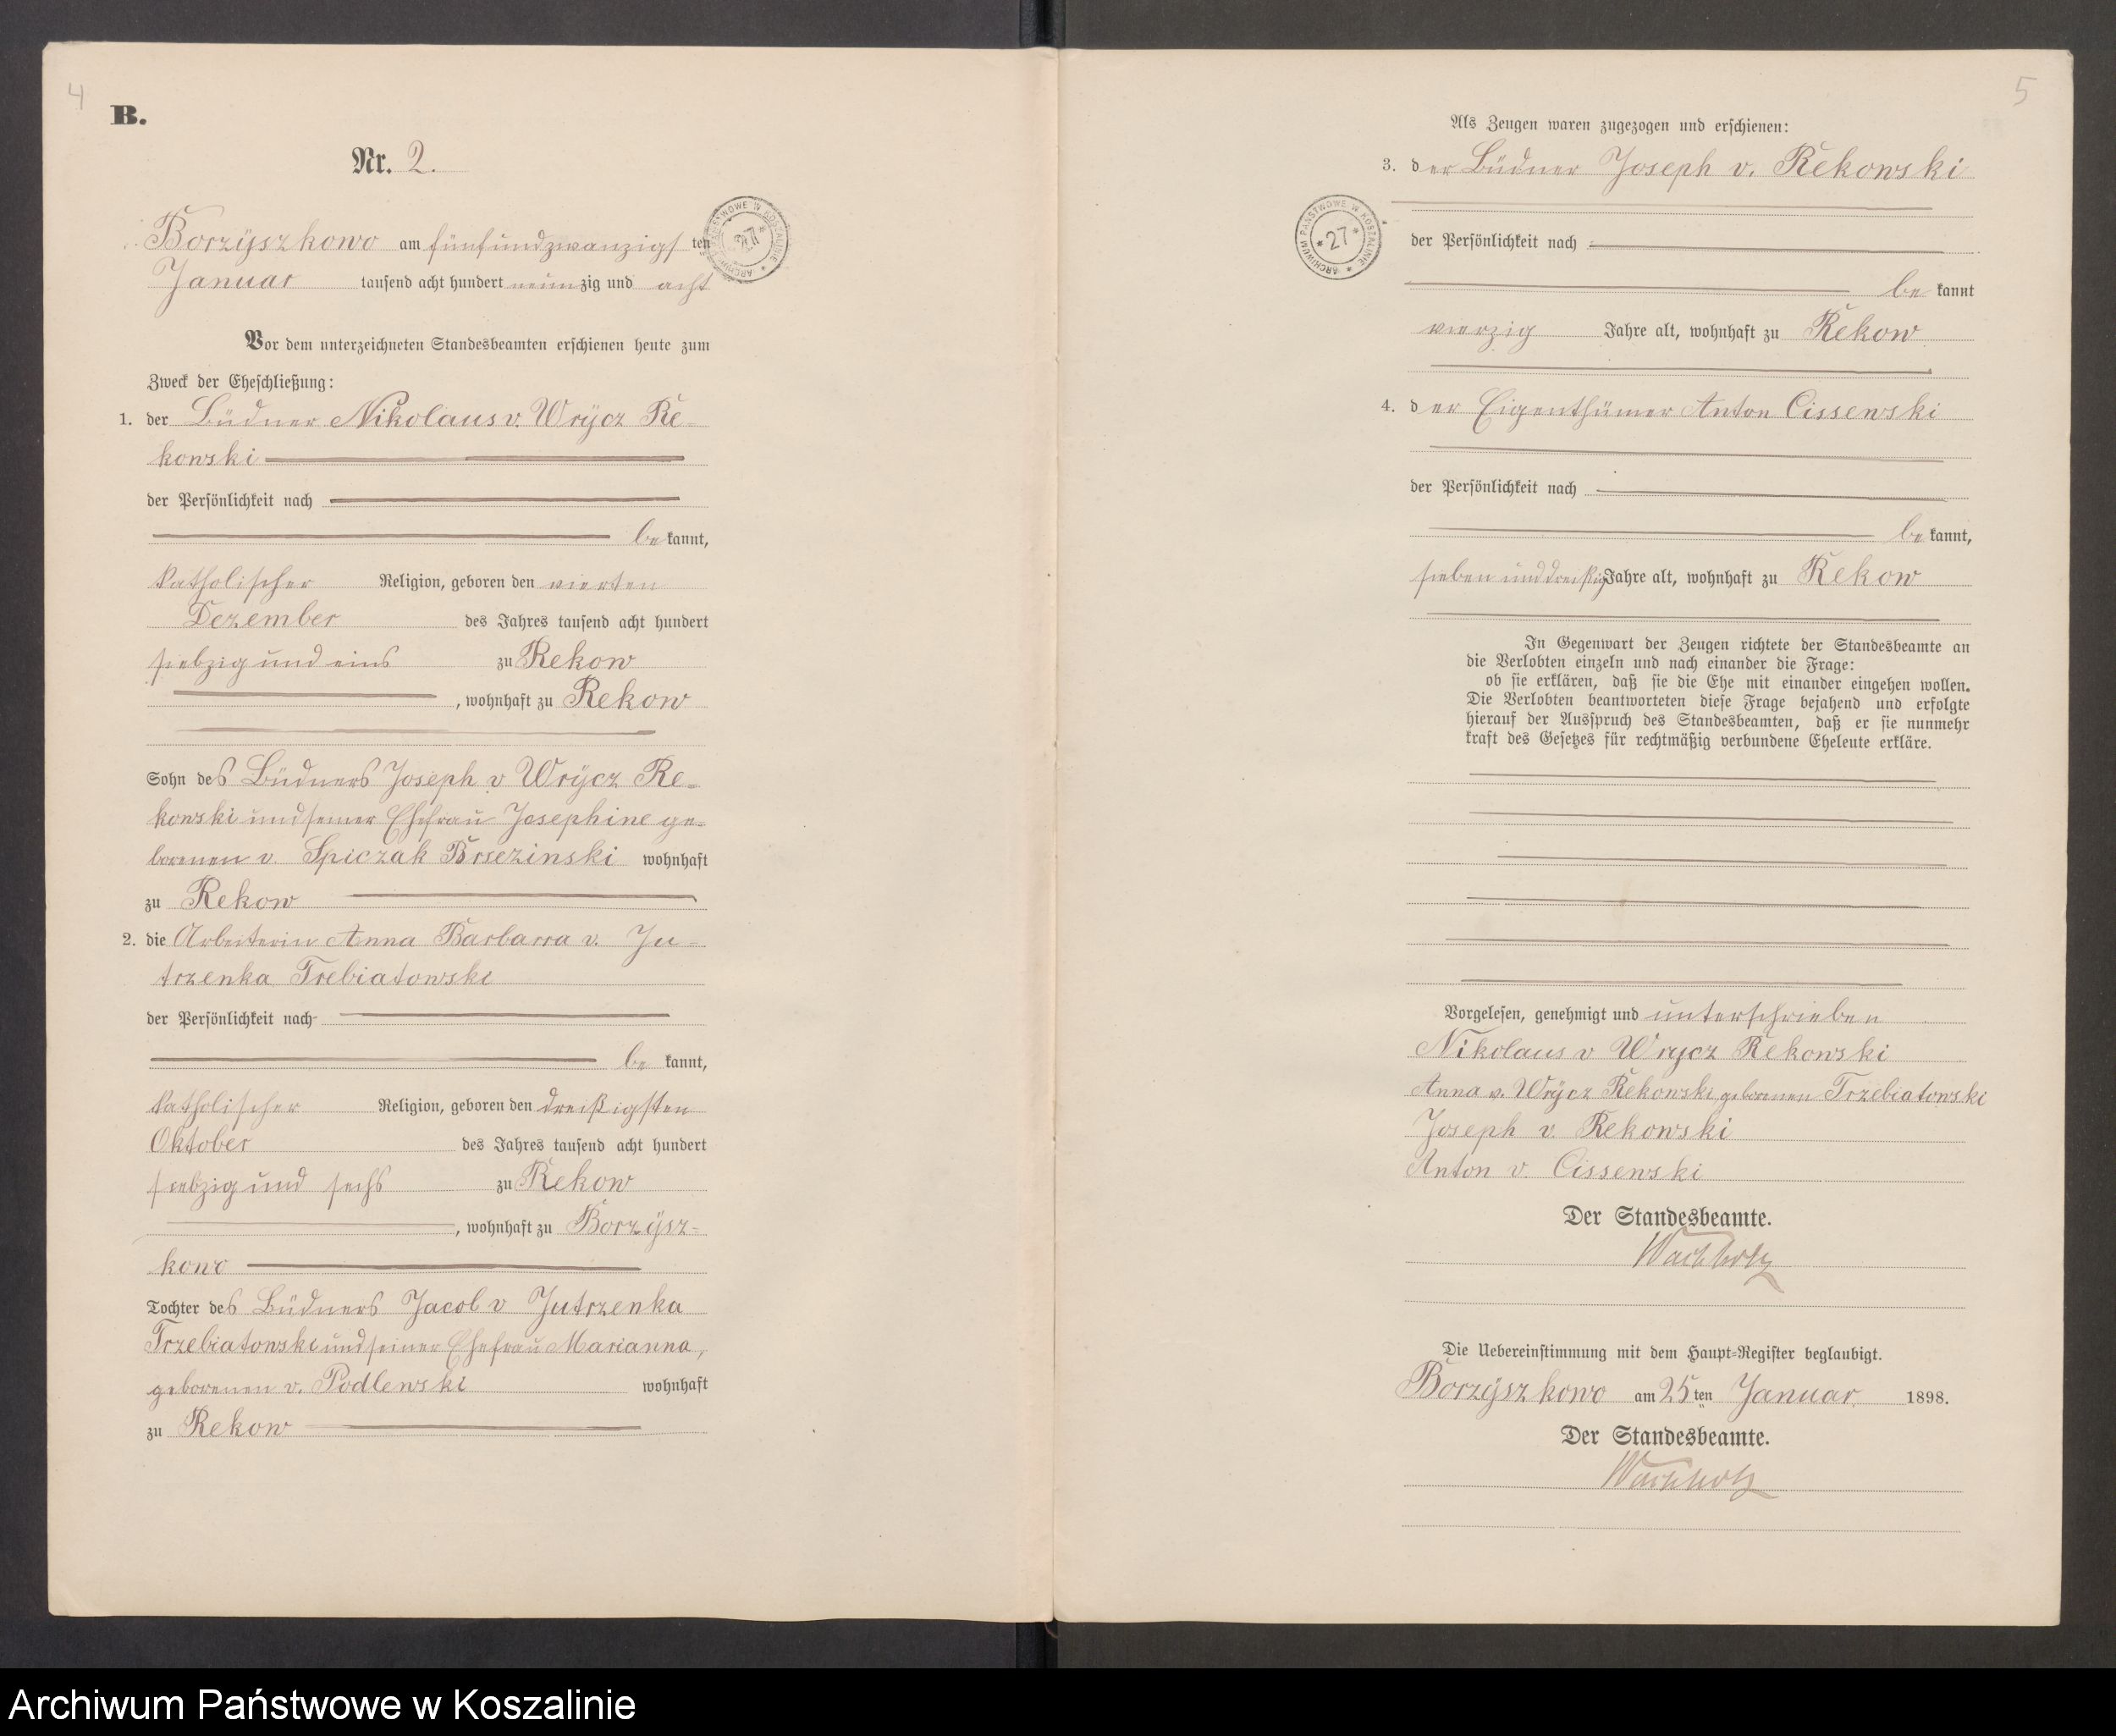 4
B.
Nr. 2.
Borzÿszkowo am fünfundzwanzigsten
Januar tausend acht hundert neunzig und acht
Vor dem unterzeichneten Standesbeamten erschienen heute zum
Zweck der Eheschließung:
1. der Büdner Nikolaus v. Wrÿcz Re-
kowski
der Persönlichkeit nach
bekannt,
katholischer Religion, geboren den vierten
Dezember des Jahres tausend acht hundert
siebzig und eins zu Rekow
, wohnhaft zu Rekow
Sohn des Büdners Joseph v Wrÿcz Re-
kowski und seiner Ehefrau Josephine ge-
borenen v. Spiczak Brsezinski wohnhaft
zu Rekow
2. die Arbeiterin Anna Barbarra v. Ju-
trzenka Trebiatowski
der Persönlichkeit nach
bekannt,
katholischer Religion, geboren den dreißigsten
Oktober des Jahres tausend acht hundert
siebzig und sechs zu Rekow
, wohnhaft zu Borzÿsz-
kowo
Tochter des Büdners Jacob v Jutrzenka
Trzebiatowski und seiner Ehefrau Marianna,
geborenen v. Podlewski wohnhaft
zu Rekow
ARCHIWUM PAŃSTWOWE W KOSZALINIE * 27 *
5
Als Zeugen waren zugezogen und erschienen:
3. der Büdner Joseph v. Rekowski
ARCHIWUM PAŃSTWOWE W KOSZALINIE * 27 *
der Persönlichkeit nach
bekannt
vierzig Jahre alt, wohnhaft zu Rekow
4. der Eigenthümer Anton Cissewski
der Persönlichkeit nach
bekannt,
sieben und dreißig Jahre alt, wohnhaft zu Rekow
In Gegenwart der Zeugen richtete der Standesbeamte an
die Verlobten einzeln und nach einander die Frage:
ob sie erklären, daß sie die Ehe mit einander eingehen wollen.
Die Verlobten beantworteten diese Frage bejahend und erfolgte
hierauf der Ausspruch des Standesbeamten, daß er sie nunmehr
kraft des Gesetzes für rechtmäßig verbundene Eheleute erkläre.
Vorgelesen, genehmigt und unterschrieben
Nikolaus v Wrycz Rekowski
Anna v. Wrÿcz Rekowski geborenen Trzebiatowski
Joseph v. Rekowski
Anton v. Cissewski
Der Standesbeamte.
Wachholz
Die Uebereinstimmung mit dem Haupt-Register beglaubigt.
Borzÿszkowo am 25ten Januar 1898.
Der Standesbeamte.
Wachholz
Archiwum Państwowe w Koszalinie